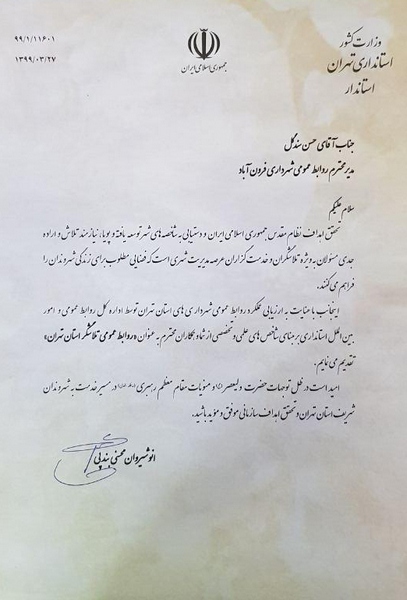 ۹۹/۱/۱۱۶۰۱
۱۳۹۹/۰۳/۲۷
جمهوری اسلامی ایران
وزارت کشور
استانداری تهران
استاندار
جناب آقای حسن سندگل
مدیر محترم روابط عمومی شهرداری فرون آباد
سلام علیکم
تحقق اهداف نظام مقدس جمهوری اسلامی ایران و دستیابی به شاخصه های شهر توسعه یافته و پویا، نیازمند تلاش و اراده
جدی مسئولان به ویژه تلاشگران و خدمت گزاران عرصه مدیریت شهری است که فضایی مطلوب برای زندگی شهروندان را
فراهم می کنند.
اینجانب با عنایت به ارزیابی عملکرد روابط عمومی شهرداری های استان تهران توسط اداره کل روابط عمومی و امور
بین الملل استانداری بر مبنای شاخص های علمی و تخصصی از شما و همکاران محترم به عنوان «روابط عمومی تلاشگر استان تهران»
تقدیر می نمایم.
امید است در ظل توجهات حضرت ولیعصر و منویات مقام معظم رهبری در مسیر خدمت به شهروندان
شریف استان تهران و تحقق اهداف سازمانی موفق و مؤید باشید.
انوشیروان محسنی بندپی